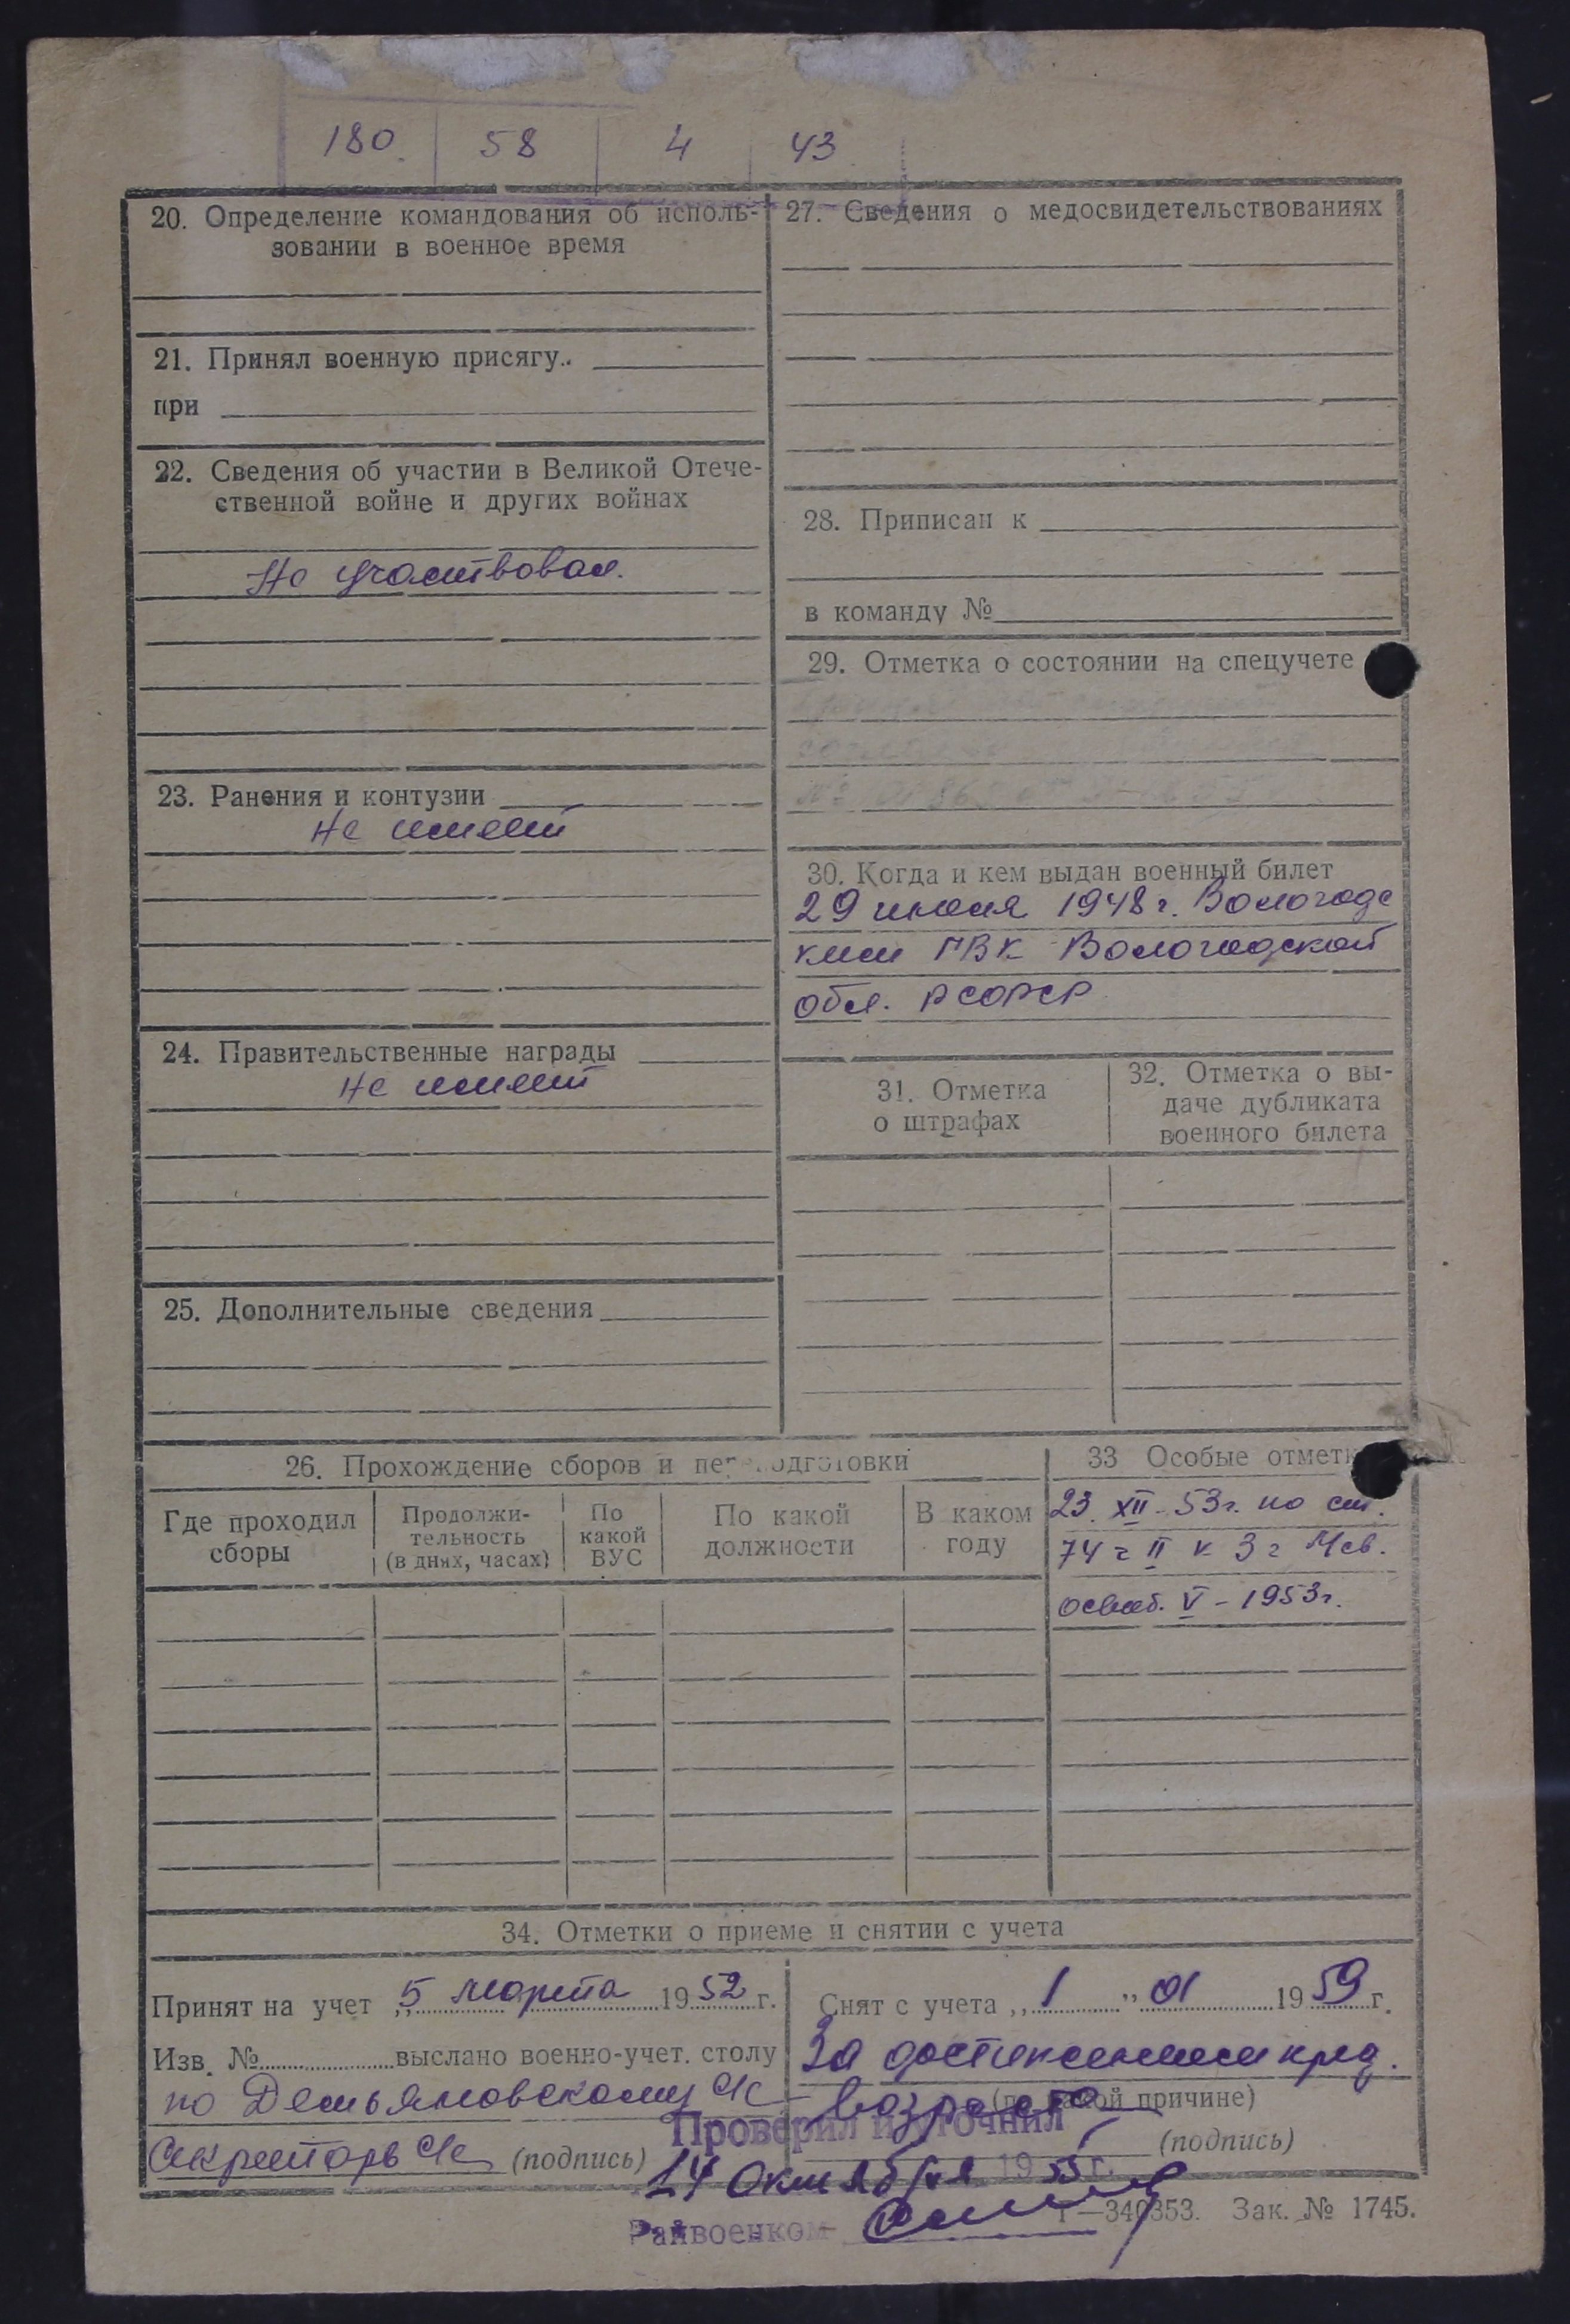 180 58 4 43
20. Определение командования об исполь-
зовании в военное время
21. Принял военную присягу
при
22. Сведения об участии в Великой Отече-
ственной войне и других войнах
Не участвовал.
23. Ранения и контузии
Не имеет
24. Правительственные награды
Не имеет
25. Дополнительные сведения
27. Сведения о медосвидетельствованиях
28. Приписан к
в команду №
29. Отметка о состоянии на спецучете
30. Когда и кем выдан военный билет
29 июля 1948 г. Вологодс
ким ГВК Вологодской
обл. РСФСР
31. Отметка
о штрафах
32. Отметка о вы-
даче дубликата
военного билета
26. Прохождение сборов и переподготовки
Где проходил
сборы
Продолжи-
тельность
(в днях, часах)
По
какой
ВУС
По какой
должности
В каком
году
33 Особые отметк
23. XII - 53г. по ст.
74 ч II к 3 г
освоб. V - 1953г.
34. Отметки о приеме и снятии с учета
Принят на учет „5 марта 1952 г.
Изв. № выслано военно-учет. столу
по Демьяновскому с/с
Секретарь с/с (подпись)
Снят с учета „1" 01 1959 г.
За достижением пред.
возраста (по какой причине)
(подпись)
Проверил и уточнил
14 октября 1955 г.
Райвоенком
Г—340353. Зак. № 1745.